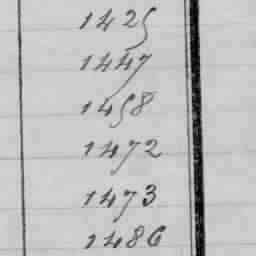 1425
1447
1458
1472
1473
1486